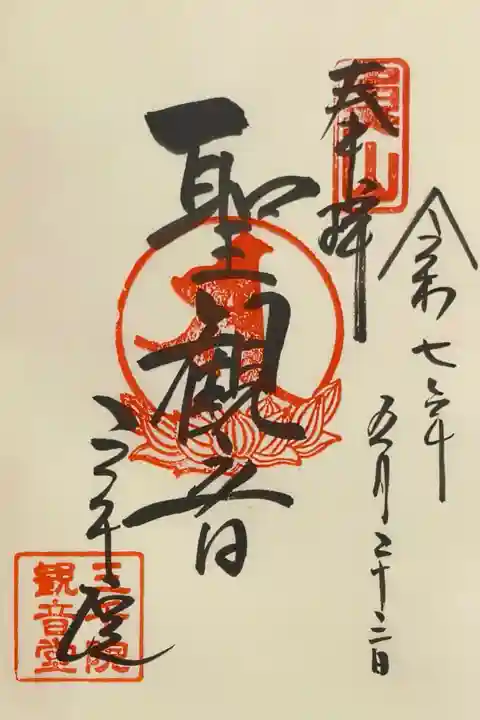 魚山
奉拝
令和七年
五月二十三日
聖観音
三千院
三千院
観音堂